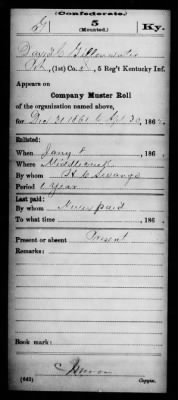 (Confederate.)
G 5 Ky.
(Mounted.)
David C Gillenwater
Pvt, (1st) Co. , 5 Reg't Kentucky Inf.
Appears on
Company Muster Roll
of the organization named above,
for Dec 31 1861 to Apl 30, 186
Enlisted:
When Jany 8, 186
Where
By whom H C Swango
Period 1 Year
Last paid:
By whom Never paid
To what time , 186
Present or absent Present
Remarks:
Book mark:
(642) Copyist.